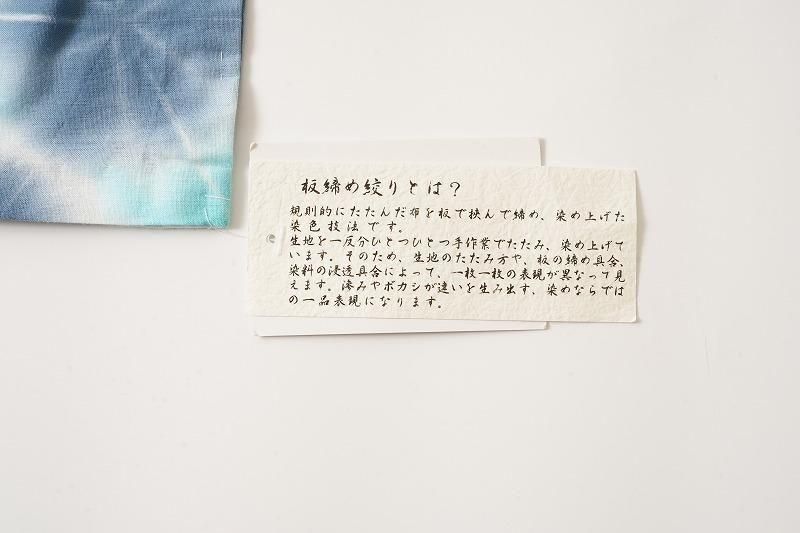 板締め絞りとは?
規則的にたたんだ布を板で挟んで締め、染め上げた
染色技法です。
生地を一反分ひとつひとつ手作業でたたみ、染め上げて
います。そのため、生地のたたみ方や、板の締め具合、
染料の浸透具合によって、一枚一枚の表現が異なって見
えます。滲みやボカシが違いを生み出す、染めならでは
の一品表現になります。